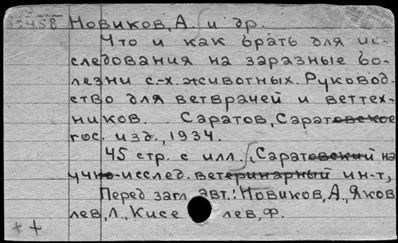 15458 Новиков, А. и др.
Что и как брать для ис-
следования на заразные бо-
лезни с.-х. животных. Руковод-
ство для ветврачей и веттех-
ников. Саратов, Саратовское
гос. изд., 1934.
45 стр. с илл. (Саратовский на
учно-исслед. ветеринарный ин-т,
Перед загл. авт.: Новиков, А., Яков
лев, Л., Кисе лев, Ф.